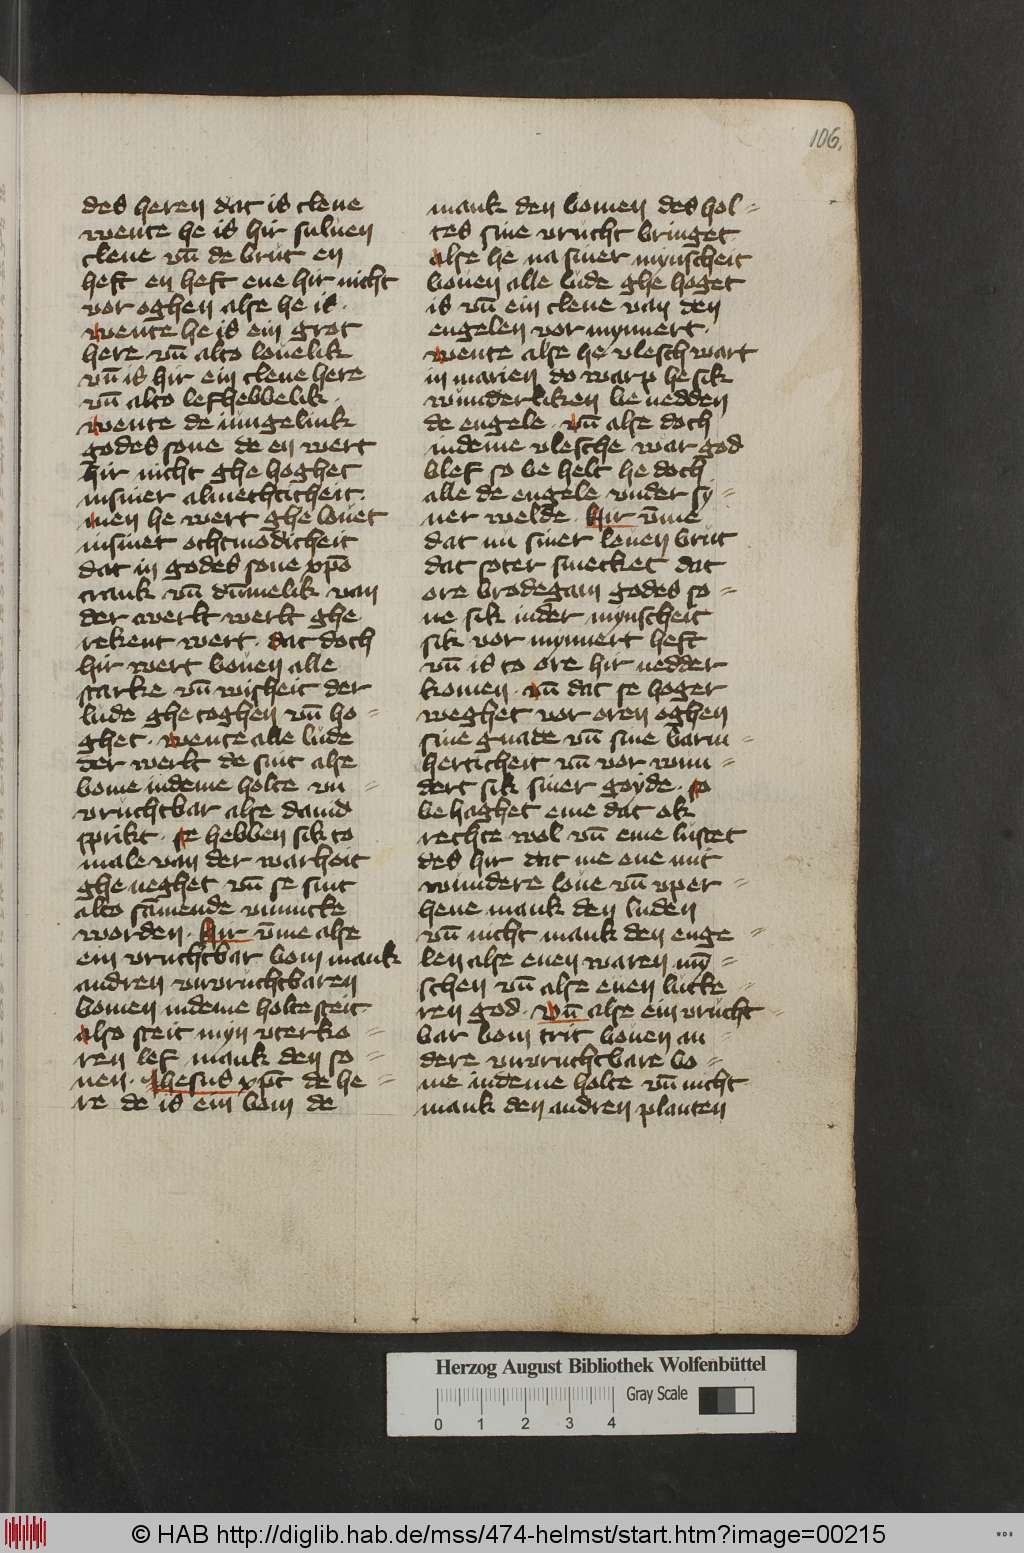 106.
des heren dat is clene
wente he is hir suluen
clene vn̄ de brut en
heft en heft ene hir nicht
vor oghen alse he is.
wente he is ein grot
here vn̄ alto louelik
vn̄ is hir ein clene here
vn̄ alto lefhebbelik.
wente de iungelink
godes sone de en wert
hir nicht ghe hoghet
insiner almechticheit.
men he wert ghe louet
insiner othmodicheit
dat in godes sone xp̄o
crank vn̄ dūmelik van
der werlt werlt ghe
rekent wert. dat doch
hir wert bouen alle
starke vn̄ wisheit der
lude ghe toghen vn̄ ho=
ghet. wente alle lude
der werlt de sint alse
bome indeme holte vn=
vruchtbar alse dauid
sprikt. se hebben sik to
male van der warheit
ghe neghet vn̄ se sint
alto sāmende vnnutte
worden. Hir v̄me alse
ein vruchtbar bom mank
andren vnvruchtbaren
bomen indeme holte steit
also steit myn vterko=
ren lef mank den so=
nen. Ihesus xp̄t de he=
re de is ein bom de
mank den bomen des hol=
tes sine vrucht bringet
alse he na siner mynscheit
bouen alle lude ghe hoget
is vn̄ ein clene van den
engelen vor mynnert.
wente alse he vlesch wart
in marien do warp he sik
wunderliken be nedden
de engele. vn̄ alse doch
indeme vlesche war god
blef so be helt he doch
alle de engele vnder sy=
ner welde. Hir v̄me
dat nu siner leuen brut
dat soter smecket dat
ore brodegam godes so=
ne sik inder mynscheit
sik vor mynnert heft
vn̄ is to ore hir nedder
komen. vn̄ dat se hoger
weghet vor oren oghen
sine gnade vn̄ sine barm=
herticheit vn̄ vor wun=
dert sik siner goyde. so
be haghet eme dat ok
rechte wol vn̄ eme lustet
des hir dat me ene mit
wundere loue vn̄ vper=
heue mank den luden
vn̄ nicht mank den enge=
len alse euen waren mn̄=
schen vn̄ alse euen lutte=
ren god. vn̄ alse ein vrucht=
bar bom trit bouen an=
dere vnvruchtbare bo=
me indeme holte vn̄ nicht
mank den andren planten
Herzog August Bibliothek Wolfenbüttel
0 1 2 3 4
Gray Scale
© HAB http://diglib.hab.de/mss/474-helmst/start.htm?image=00215